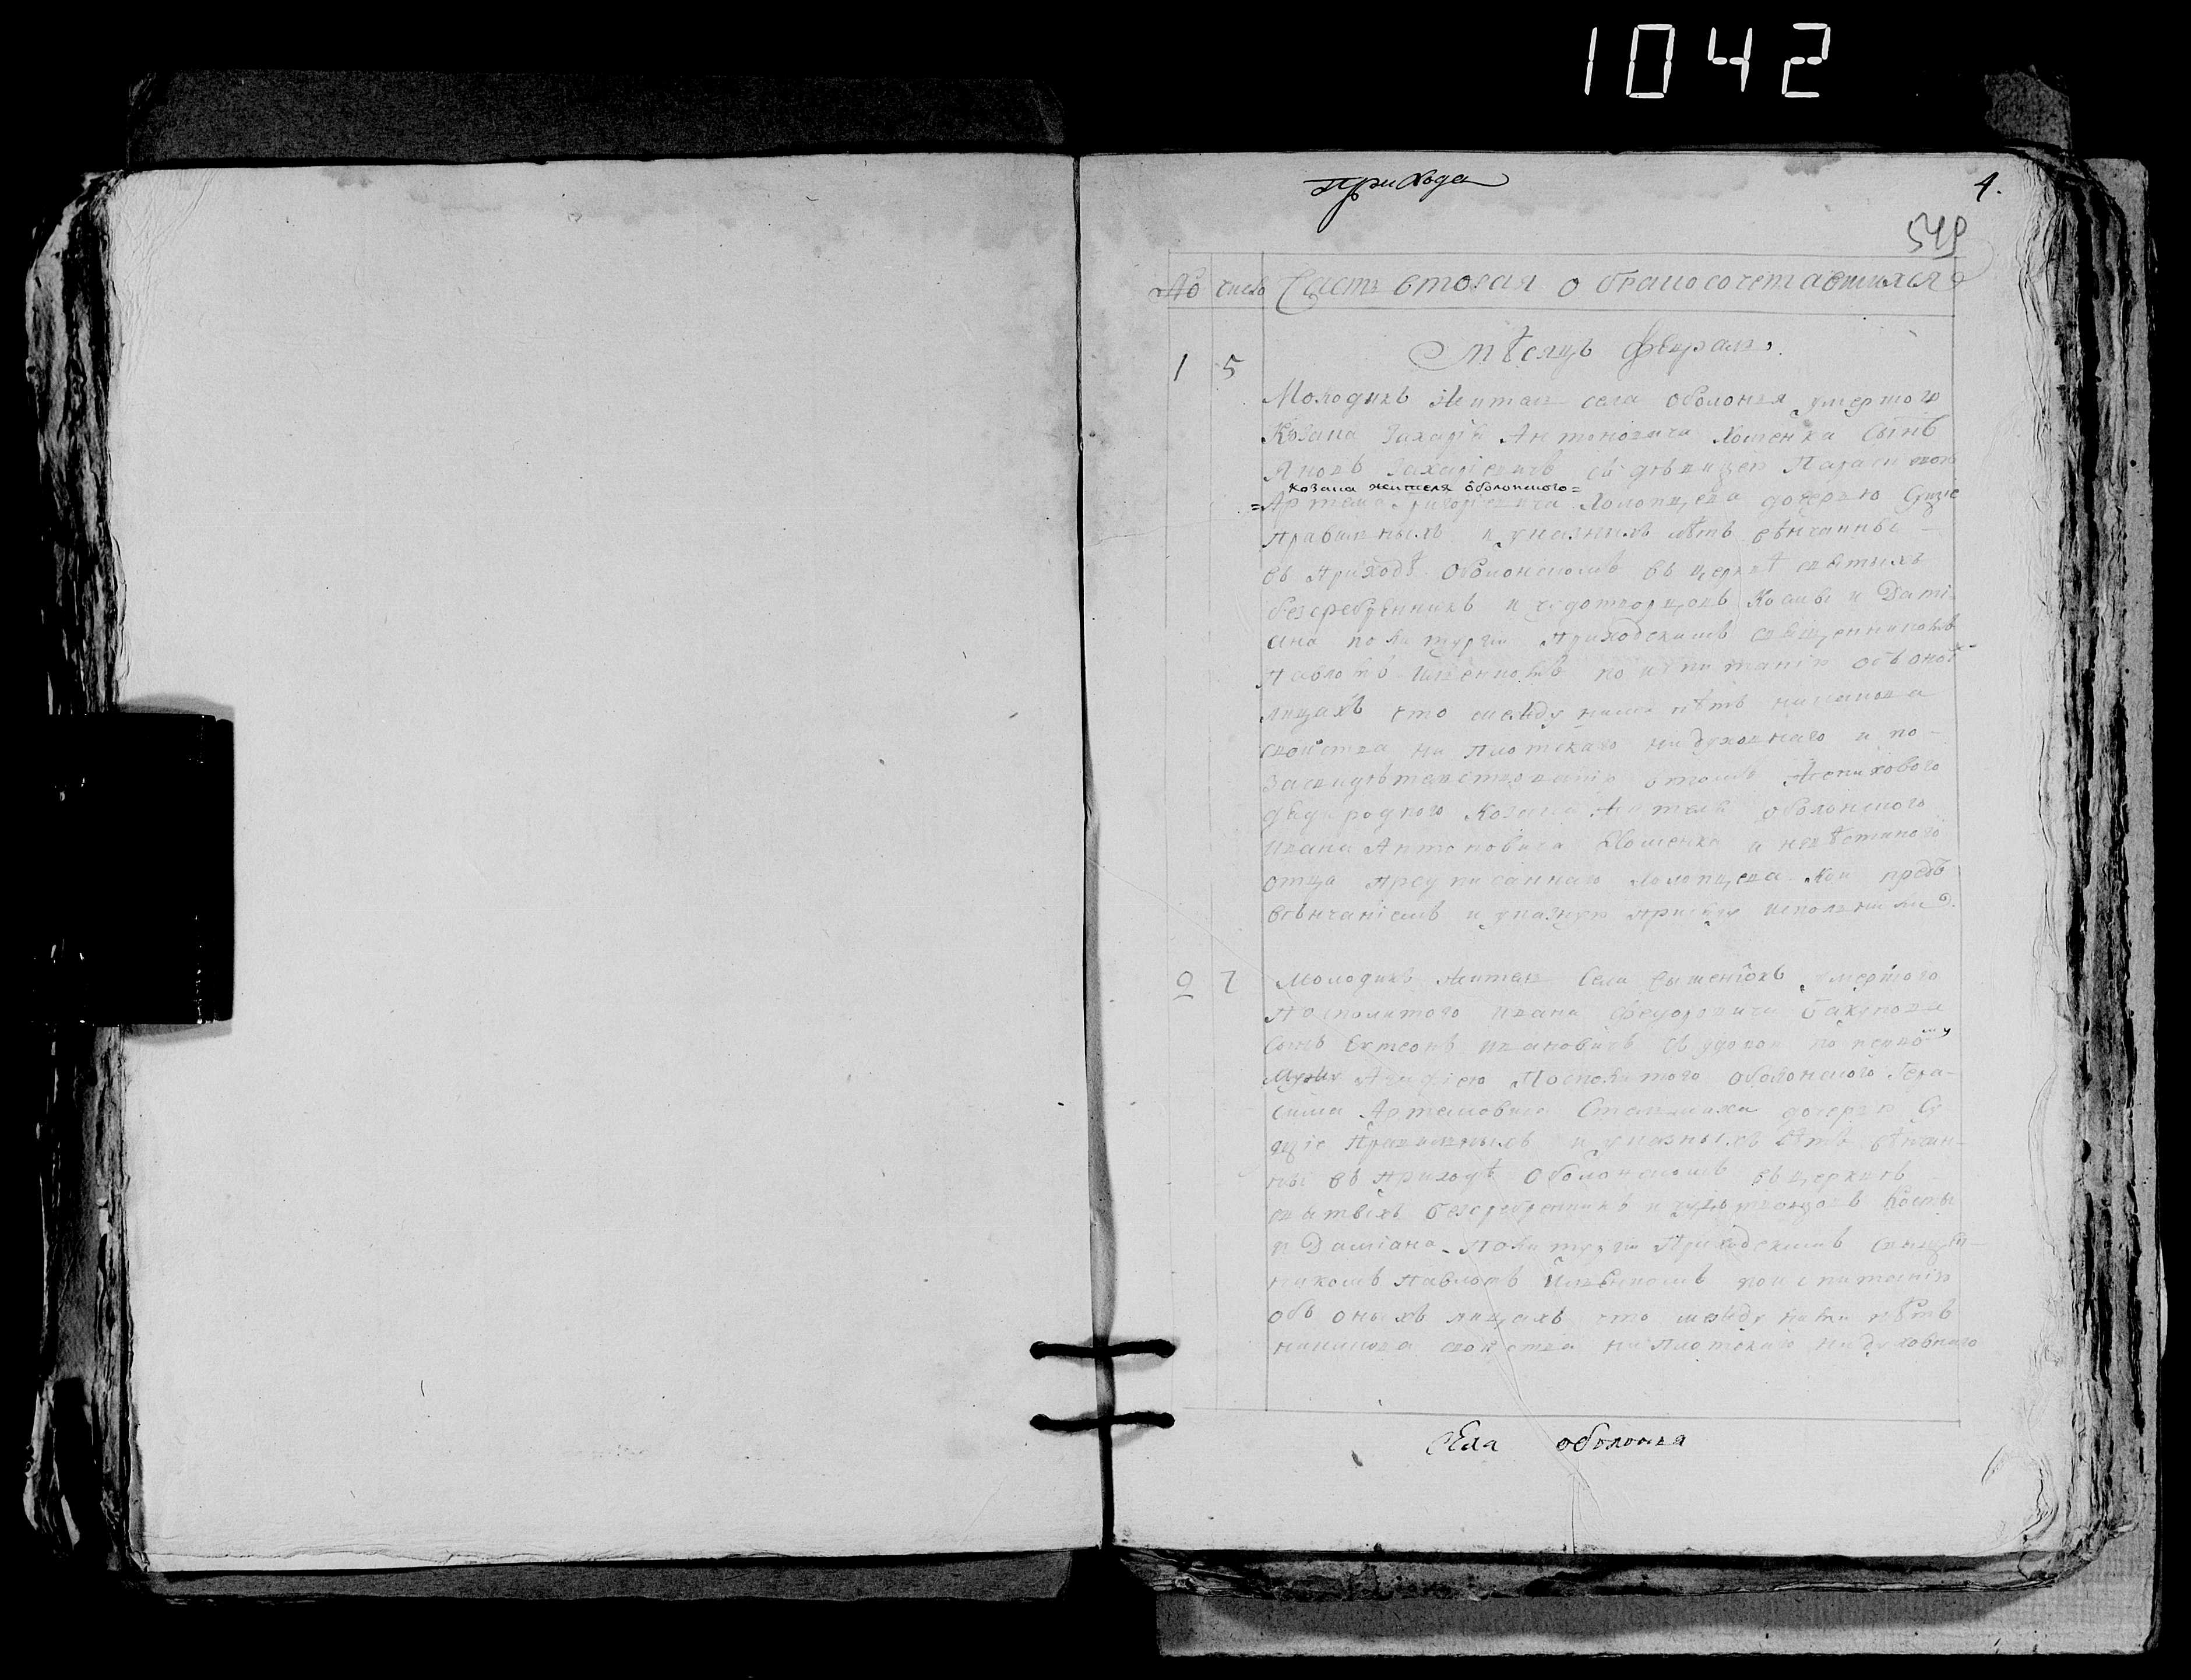 1042
Прихода
4.
549
№ число Часть вторая о бракосочетавшихся
Мѣсяцъ Февраль
1 5
Молодикъ житель села Оболоня умершого
Козака Захарія Антоновича Хоменка сынъ
Яковъ Захаріевичъ съ дѣвицею Параскевою
козака жителя оболонского=
=Артема Григоріевича Холопцева дочерью Сущіе
правильныхъ и указныхъ лѣтъ вѣнчанны
въ приходѣ Оболонскомъ въ церквѣ святыхъ
безсребренникъ и чудотворцовъ Космы и Дамі-
ана по литургіи приходскимъ священникомъ
Павломъ по испитанію объ оныхъ
лицахъ что между ними нѣтъ никакова
свойства ни плотскаго ни духовнаго и по-
засвидѣтельствованію втомъ женихового
дядъ родного Козака жителя оболонского
Ивана Антоновича Хоменка и невѣстиного
отца предписаннаго Холопцева кои предъ
вѣнчаніемъ и указную присягу исполнили
2 7
Молодикъ житель села Вишенокъ умершого
Посполитого Ивана Федоровича
сынъ Ивановичъ съ удовою по первому
мужу Посполитого оболонского Гера-
сима Артемовича Стельмаха дочерью Су-
щіе правильныхъ и указныхъ лѣтъ вѣнчан-
ны въ приходѣ Оболонскомъ въ церквѣ
святыхъ безсребренникъ и чудотворцовъ Космы
и Даміана по литургіи приходскимъ священ-
никомъ Павломъ по испитанію
объ оныхъ лицахъ что между ними нѣтъ
никакова свойства ни плотскаго ни духовного
села оболоня